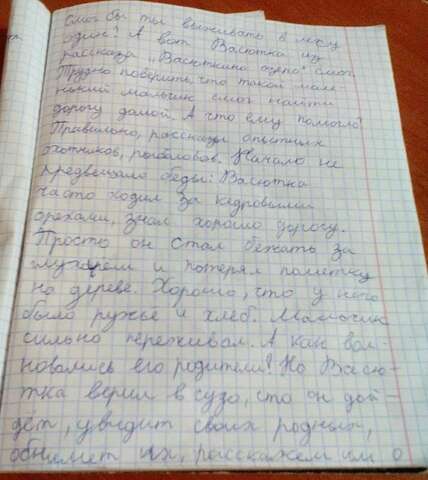 Смог бы ты выживать в лесу
один? А вот Васютка из
рассказа „Васюткино озеро" смог.
Трудно поверить, что такой мале-
нький мальчик смог найти
дорогу домой. А что ему помогло?
Правильно, рассказы опытных
охотников, рыболовов. Начало не
предвещало беды: Васютка
часто ходил за кедровыми
орехами, знал хорошо дорогу.
Просто он стал бежать за
глухарем и потерял пометку
на дереве. Хорошо, что у него
было ружьё и хлеб. Мальчик
сильно переживал. А как вол-
новались его родители! Но Васю-
тка верил в чудо, что он дой-
дёт, увидит своих родных,
обнимет их, расскажет им о